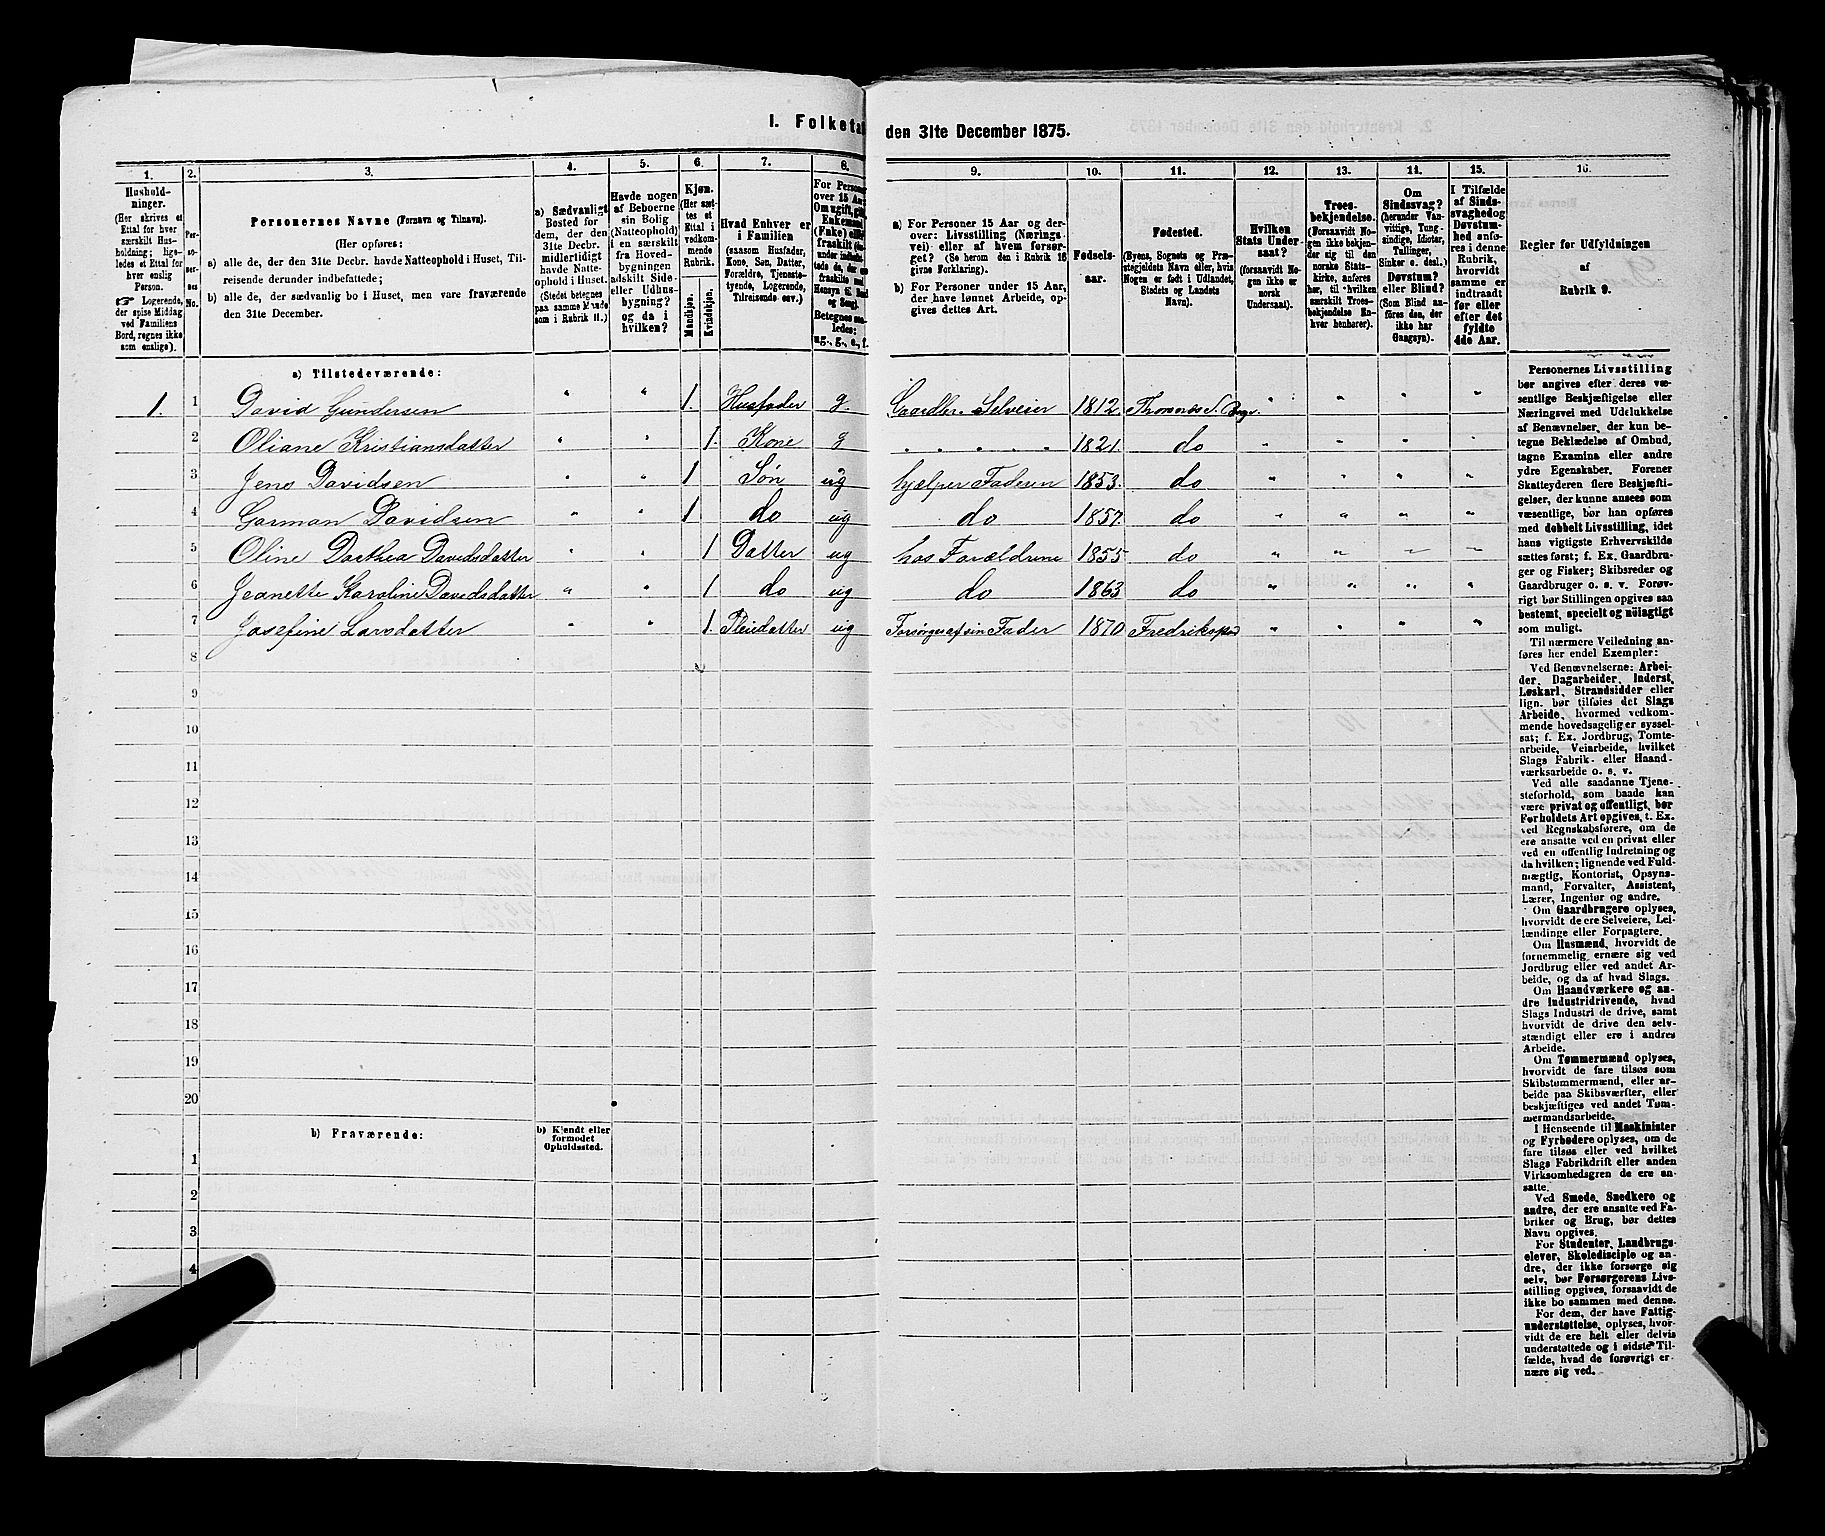 I. Folketal den 31te December 1875.
1. 2. 3. 4. 5. 6. 7. 8. 9. 10. 11. 12. 13. 14. 15. 16.
Hushold-
ninger.
(Her skrives et
Ettal for hver
særskilt Hus-
holdning; lige-
ledes et Ettal for
hver enslig
Person.
☞ Logerende,
der spise Middag
ved Familiens
Bord, regnes ikke
som enslige).
Per-
so-
ner-
nes
No.
Personernes Navne (Fornavn og Tilnavn).
(Her opføres:
a) alle de, der den 31te Decbr. havde Natteophold i Huset, Til-
reisende derunder indbefattede;
b) alle de, der sædvanlig bo i Huset, men vare fraværende
den 31te December.
a) Sædvanligt
Bosted for
dem, der den
31te Decbr.
midlertidigt
havde Natte-
ophold i Huset.
(Stedet betegnes
paa samme Maade
som i Rubrik 11.)
Havde nogen
af Beboerne
sin Bolig
(Natteophold)
i en særskilt
fra Hoved-
bygningen
adskilt Side-
eller Udhus-
bygning?
og da i
hvilken?
Kjøn.
(Her sæt-
tes et
Ettal i
vedkom-
mende
Rubrik.
Mandkjøn.
Kvindekjøn.
Hvad Enhver er
i Familien
(saasom Husfader,
Kone, Søn, Datter,
Forældre, Tjeneste-
tyende, Logerende,
Tilreisende osv.)
For Personer
over 15 Aar
Om ugift, gift,
Enkemand
(Enke) eller
fraskilt
Betegnes saa-
ledes:
ug., g., e., f.
a) For Personer 15 Aar og der-
over: Livsstilling (Nærings-
vei) eller af hvem forsør-
get? (Se herom den i Rubrik 16
givne Forklaring).
b) For Personer under 15 Aar,
der have lønnet Arbeide, op-
gives dettes Art.
Fødsels-
aar.
Fødested.
(Byens, Sognets og Præ-
stegjeldets Navn eller, hvis
Nogen er født i Udlandet,
Stedets og Landets
Navn).
Hvilken
Stats Under-
saat?
(forsaavidt No-
gen ikke er
norsk
Undersaat).
Troes-
bekjendelse.
(Forsaavidt No-
gen ikke bekjen-
der sig til den
norske Stats-
kirke, anføres
her, til hvilken
særskilt Troes-
bekjendelse En-
hver henhører).
Om
Sindssvag?
(herunder Van-
vittige, Tung-
sindige, Idioter,
Tullinger,
Sinker o. desl.)
Døvstum?
eller Blind?
(Som Blind an-
føres den, der
ikke har
Gangsyn).
I Tilfælde
af Sinds-
svaghed og
Døvstum-
hed anfø-
res i denne
Rubrik,
hvorvidt
samme er
indtraadt
før eller
efter det
fyldte
4de Aar.
Regler for Udfyldningen
af
Rubrik 9.
a) Tilstedeværende:
1. 1 David Gundersen " " 1. Husfader g. Gaardbr. Selveier 1812. " " " "
2 Oliane Kristiansdatter " " 1. Kone g " " " " " 1821. do " " " "
3 Jens Davidsen " " 1 Søn ug hjælper Faderen 1853. do " " " "
4 Gorman Davidsen " " 1 do ug do 1857. do " " " "
5 Oline Dorthea Davidsdatter " " 1 Datter ug hos Forældrene 1855. do " " " "
6 Jeanette Karoline Davidsdatter " " 1 do ug do 1863. do " " " "
7 Josefine Larsdatter " " 1. Pleiedatter ug Forsørges af sin Fader 1870 Fredrikstad " " " "
8
9
10
11
12
13
14
15
16
17
18
19
20
b) Fraværende:
b) Kjendt eller
formodet
Opholdssted.
1
2
3
4
Personernes Livsstilling
bør angives efter deres væ-
sentlige Beskjæftigelse eller
Næringsvei med Udelukkelse
af Benævnelser, der kun be-
tegne Beklædelse af Ombud,
tagne Examina eller andre
ydre Egenskaber. Forener
Skatteyderen flere Beskjæfti-
gelser, der kunne ansees som
væsentlige, bør han opføres
med dobbelt Livsstilling, idet
hans vigtigste Erhvervskilde
sættes først; f. Ex. Gaardbru-
ger og Fisker; Skibsreder og
Gaardbruger o. s. v. Forøv-
rigt bør Stillingen opgives saa
bestemt, specielt og nøiagtigt
som muligt.
Til nærmere Veiledning an-
føres her endel Exempler:
Ved Benævnelserne: Arbei-
der, Dagarbeider, Inderst,
Løskarl, Strandsidder eller
lign. bør tilføies det Slags
Arbeide, hvormed vedkom-
mende hovedsagelig er syssel-
sat; f. Ex. Jordbrug, Tomte-
arbeide, Veiarbeide, hvilket
Slags Fabrik- eller Haand-
værksarbeide o. s. v.
Ved alle saadanne Tjene-
steforhold, som baade kan
være privat og offentligt, bør
Forholdets Art opgives, t. Ex.
ved Regnskabsførere, om de
ere ansatte ved en privat eller
ved en offentlig Indretning og
da hvilken; lignende ved Fuld-
mægtig, Kontorist, Opsyns-
mand, Forvalter, Assistent,
Lærer, Ingeniør og andre.
Om Gaardbrugere oplyses,
hvorvidt de ere Selveiere, Lei-
lændinge eller Forpagtere.
Om Husmænd, hvorvidt de
fornemmelig ernære sig ved
Jordbrug eller ved andet Ar-
beide, og da af hvad Slags.
Om Haandværkere og an-
dre Industridrivende, hvad
Slags Industri de drive, samt
hvorvidt de drive den selv-
stændigt eller ere i andres
Arbeide.
Om Tømmermænd oplyses,
hvorvidt de fare tilsøs som
Skibstømmermænd, eller ar-
beide paa Skibsværfter, eller
beskjæftiges ved andet Tøm-
mermandsarbeide.
I Henseende til Maskinister
og Fyrbødere oplyses, om de
fare tilsøs eller ved hvilket
Slags Fabrikdrift eller anden
Virksomhedsgren de ere an-
satte.
Ved Smede, Snedkere og
andre, der ere ansatte ved Fa-
briker og Brug, bør dettes
Navn opgives.
For Studenter, Landbrugs-
elever, Skoledisciple og an-
dre, der ikke forsørge sig
selv, bør Forsørgerens Livs-
stilling opgives, forsaavidt de
ikke bo sammen med denne.
For dem, der have Fattig-
understøttelse, oplyses, hvor-
vidt de ere helt eller delvis
understøttede og i sidste Til-
fælde, hvad de forøvrigt er-
nære sig ved.